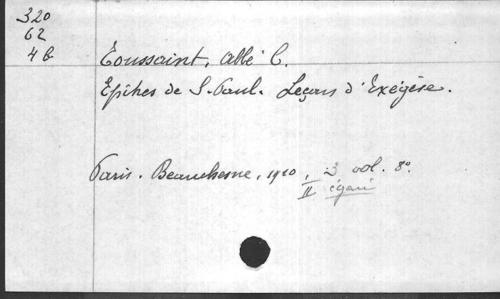 320
62
4b
Toussaint, Abbé C.
Epitres de S. Paul. Leçons d'Exégèse.
Paris. Beauchesne, 1910, 2 vol. 8°.
II égaré